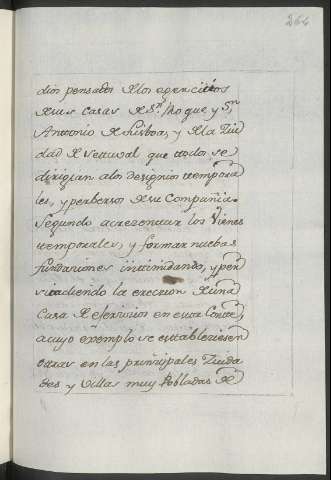 264
dios pensados de los exercicios
de sus casas de Sn. Roque y Sn.
Antonio de Lisboa, y de la Ciu
dad de Setuval que todos se
dirigian a los designios tempora
les, y perbersos de su Compañia.
Segundo acrezentar los Vienes
temporales, y formar nuebas
fundaciones intimidando, y per
suadiendo la ereccion de una
Casa de exercicios en esta Corte,
a cuyo exemplo se estableziesen
otras en las principales Ciuda
des y Villas muy Pobladas de